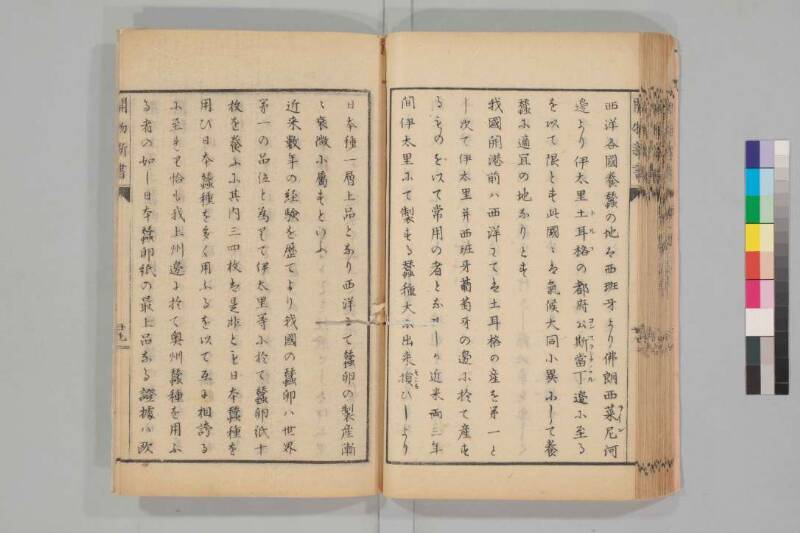 西洋各國養蠶の地ハ西班牙より佛朗西萊尼河
ライン
邊より伊太里土耳格の都府公斯當丁邊ニ至る
トルコ
コンスタンチノープル
を以て限とす此國々ハ氣候大同小異ニして養
蠶ニ適宜の地なりとす
我國開港前ハ西洋にてハ土耳格の産を第一と
し次て伊太里并西班牙葡萄牙の邊ニ於て産す
るものを以て常用の者となせしか近來両三年
間伊太里ニて製する蠶種大ニ出来損ひしより
日本種一層上品となり西洋にて蠶卵の製産漸
々衰微ニ屬すといふ
近来数年の経験を歴てより我國の蠶卵ハ世界
第一の品位と為せて伊太里等ニ於て蠶卵紙十
枚を養ふニ其内三四枚ハ是非とも日本蠶種を
用ひ日本蠶種を多く用ふるを以て互ニ相誇る
ニ至るを恰も我上州邊ニ於て奥州蠶種を用ふ
る者の如し日本蠶卵紙の最上品なる證據ハ欧
開物新書